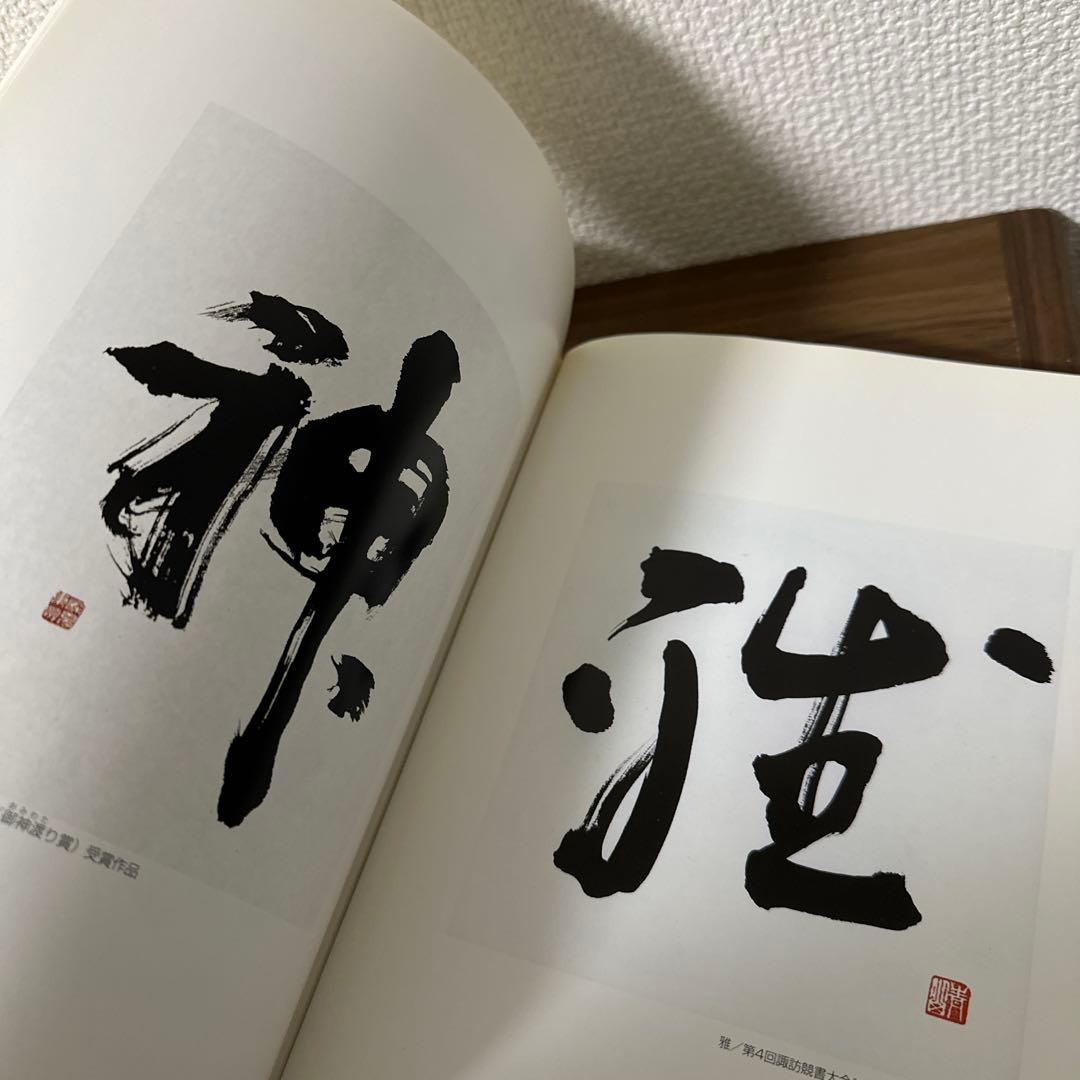 神
おみわた
御神渡り賞）受賞作品
雅
雅／第4回諏訪競書大会